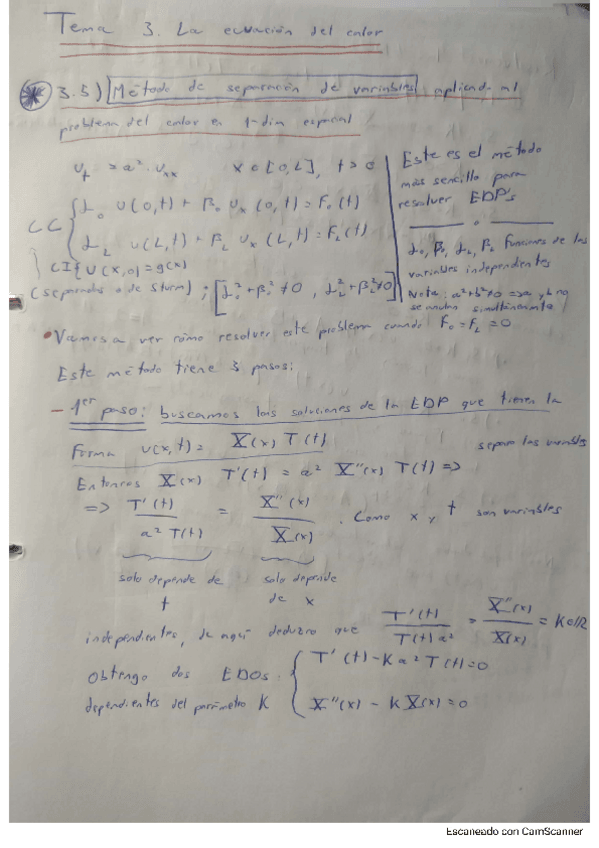 Tema 3. La ecuación del calor
3.3) Método de separación de variables aplicado al
problema del calor en 1-dim espacial
u_t = a² · u_xx x ∈ [0, L], t > 0
CC { α_0 u(0,t) + β_0 u_x(0,t) = F_0(t)
α_L u(L,t) + β_L u_x(L,t) = F_L(t)
CI { u(x,0) = g(x)
(separadas o de Sturm); [α_0² + β_0² ≠ 0, α_L² + β_L² ≠ 0]
Este es el método
más sencillo para
resolver EDP's
α_0, β_0, α_L, β_L funciones de las
variables independientes
Nota: a² + b² ≠ 0 => a y b no
se anulan simultáneamente
• Vamos a ver cómo resolver este problema cuando F_0 = F_L = 0
Este método tiene 3 pasos:
- 1er paso: buscamos las soluciones de la EDP que tienen la
forma u(x,t) = X(x) T(t) separa las variables
Entonces X(x) T'(t) = a² X''(x) T(t) =>
=> T'(t) / a² T(t) = X''(x) / X(x) . Como x y t son variables
solo depende de t solo depende de x
independientes, de aquí deduzco que T'(t) / T(t) a² = X''(x) / X(x) = K ∈ ℝ
Obtengo dos EDOs { T'(t) - K a² T(t) = 0
dependientes del parámetro K X''(x) - K X(x) = 0
Escaneado con CamScanner